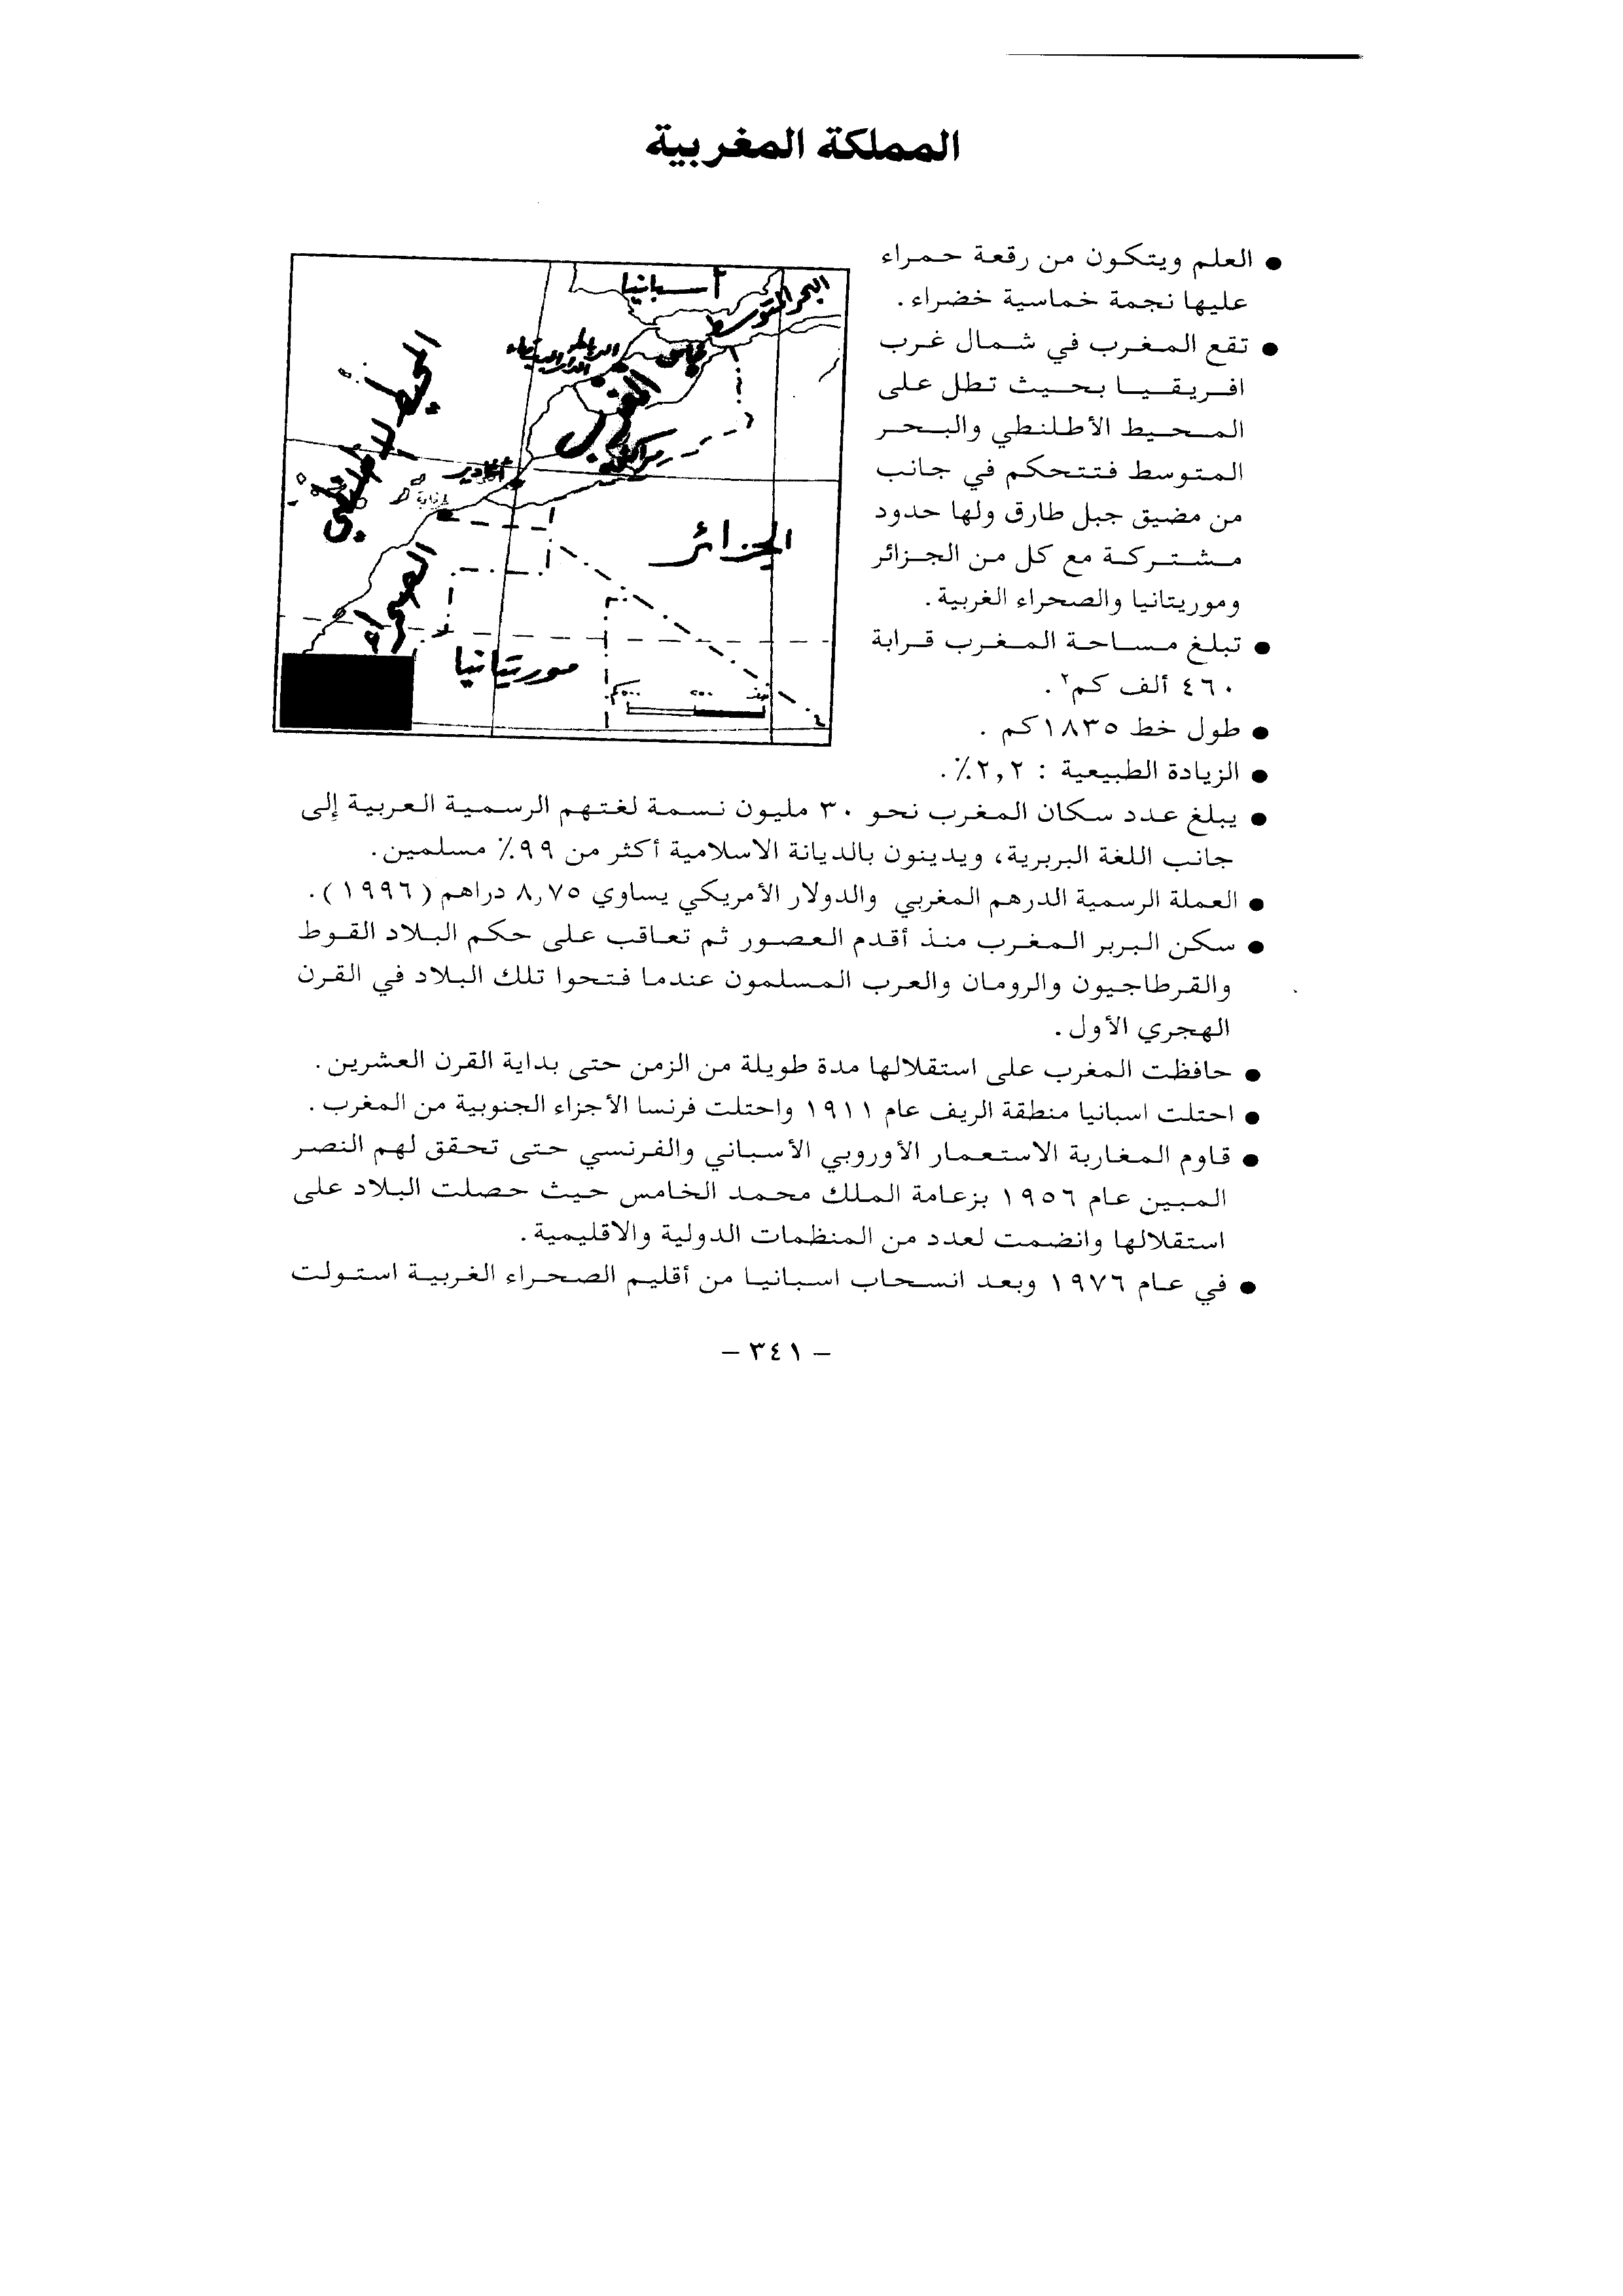 المملكة المغربية
● العلم ويتكون من رقعة حمراء
عليها نجمة خماسية خضراء.
● تقع المغرب في شمال غرب
افريقيا بحيث تطل على
المحيط الأطلنطي والبحر
المتوسط فتتحكم في جانب
من مضيق جبل طارق ولها حدود
مشتركة مع كل من الجزائر
وموريتانيا والصحراء الغربية.
● تبلغ مساحة المغرب قرابة
٤٦٠ ألف كم٢.
● طول خط ١٨٣٥كم .
● الزيادة الطبيعية : ٢,٢٪.
البحر المتوسط
أسبانيا
الرباط
الدار البيضاء
فاس
المغرب
مراكش
أغادير
المحيط الأطلنطي
الجزائر
الصحراء
موريتانيا
● يبلغ عدد سكان المغرب نحو ٣٠ مليون نسمة لغتهم الرسمية العربية إلى
جانب اللغة البربرية، ويدينون بالديانة الاسلامية أكثر من ٩٩٪ مسلمين.
● العملة الرسمية الدرهم المغربي والدولار الأمريكي يساوي ٨,٧٥ دراهم (١٩٩٦).
● سكن البربر المغرب منذ أقدم العصور ثم تعاقب على حكم البلاد القوط
والقرطاجيون والرومان والعرب المسلمون عندما فتحوا تلك البلاد في القرن
الهجري الأول.
● حافظت المغرب على استقلالها مدة طويلة من الزمن حتى بداية القرن العشرين.
● احتلت اسبانيا منطقة الريف عام ١٩١١ واحتلت فرنسا الأجزاء الجنوبية من المغرب.
● قاوم المغاربة الاستعمار الأوروبي الأسباني والفرنسي حتى تحقق لهم النصر
المبين عام ١٩٥٦ بزعامة الملك محمد الخامس حيث حصلت البلاد على
استقلالها وانضمت لعدد من المنظمات الدولية والاقليمية.
● في عام ١٩٧٦ وبعد انسحاب اسبانيا من أقليم الصحراء الغربية استولت
– ٣٤١ –